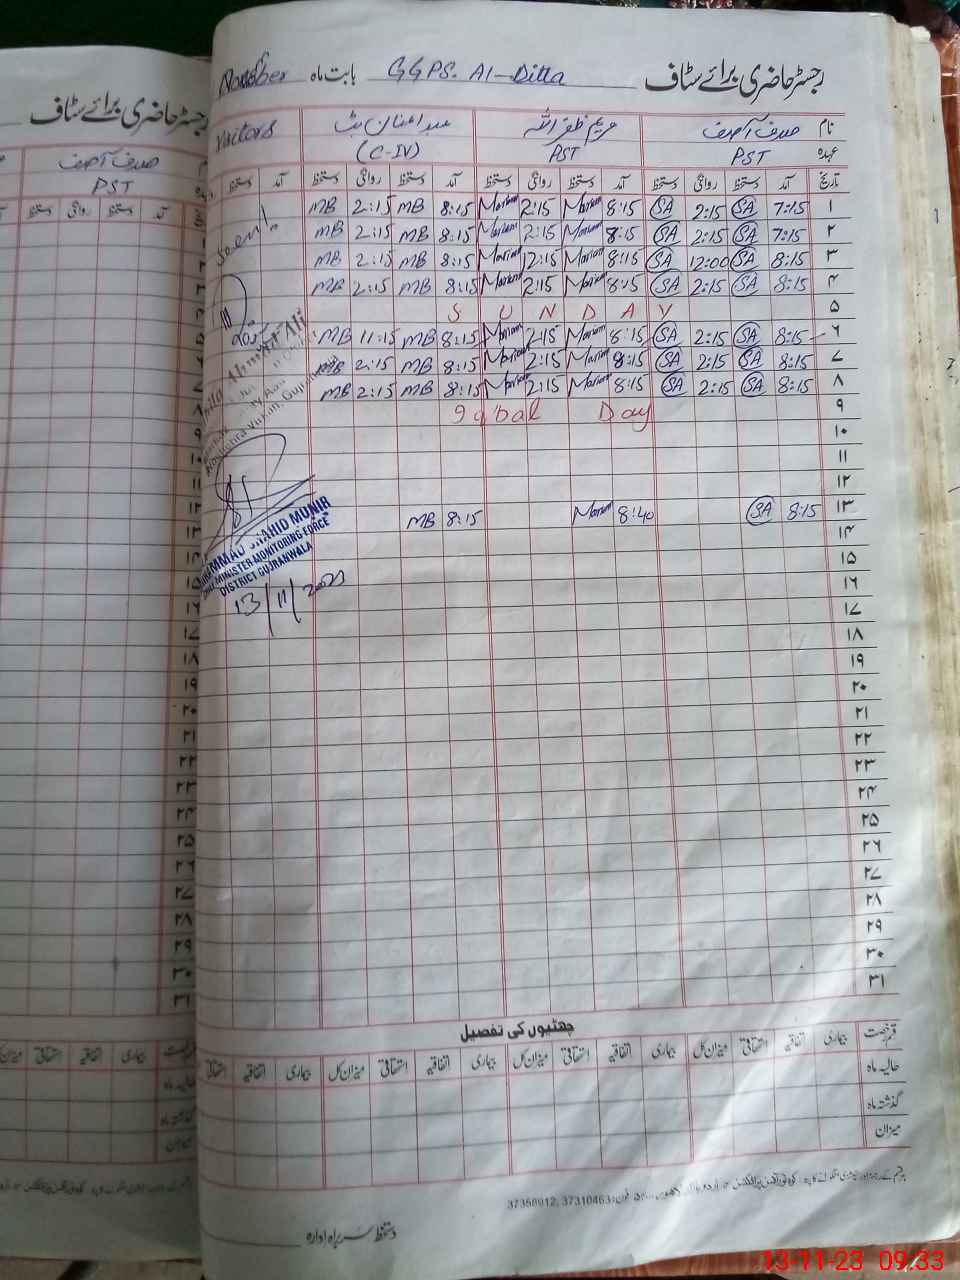 رجسٹر حاضری برائے سٹاف GGPS. Al-Ditta بابت ماہ November
نام صدف آصف مریم ظفر اللہ Visitors
عہدہ PST PST (C-IV)
تاریخ آمد دستخط روانگی دستخط آمد دستخط روانگی دستخط آمد دستخط روانگی دستخط آمد دستخط
۱ 7:15 SA 2:15 SA 8:15 Mariam 2:15 Mariam 8:15 MB 2:15 MB
۲ 7:15 SA 2:15 SA 8:15 Mariam 2:15 Mariam 8:15 MB 2:15 MB Seen
۳ 8:15 SA 12:00 SA 8:15 Mariam 12:15 Mariam 8:15 MB 2:15 MB
۴ 8:15 SA 2:15 SA 8:15 Mariam 2:15 Mariam 8:15 MB 2:15 MB
۵ SUNDAY
۶ 8:15 SA 2:15 SA 8:15 Mariam 2:15 Mariam 8:15 MB 11:15 MB
۷ 8:15 SA 2:15 SA 8:15 Mariam 2:15 Mariam 8:15 MB 2:15
۸ 8:15 SA 2:15 SA 8:15 Mariam 2:15 Mariam 8:15 MB 2:15 MB
۹ Iqbal Day
۱۰
۱۱
۱۲
۱۳ 8:15 SA 8:40 Mariam 8:15 MB
۱۴
۱۵
۱۶
۱۷
۱۸
۱۹
۲۰
۲۱
۲۲
۲۳
۲۴
۲۵
۲۶
۲۷
۲۸
۲۹
۳۰
۳۱
SHAHID MUNIR
MINISTER MONITORING FORCE
DISTRICT GUJRANWALA
13/11/2023
چھٹیوں کی تفصیل
قسم رخصت بیماری اتفاقیہ استحقاقی میزان کل بیماری اتفاقیہ استحقاقی میزان کل بیماری اتفاقیہ استحقاقی میزان کل بیماری اتفاقیہ استحقاقی
حالیہ ماہ
گذشتہ ماہ
میزان
فون: 37310463, 37358912
دستخط سربراہ ادارہ
رجسٹر حاضری برائے سٹاف
صدف آصف
PST
آمد دستخط روانگی دستخط
13-11-23 09:33